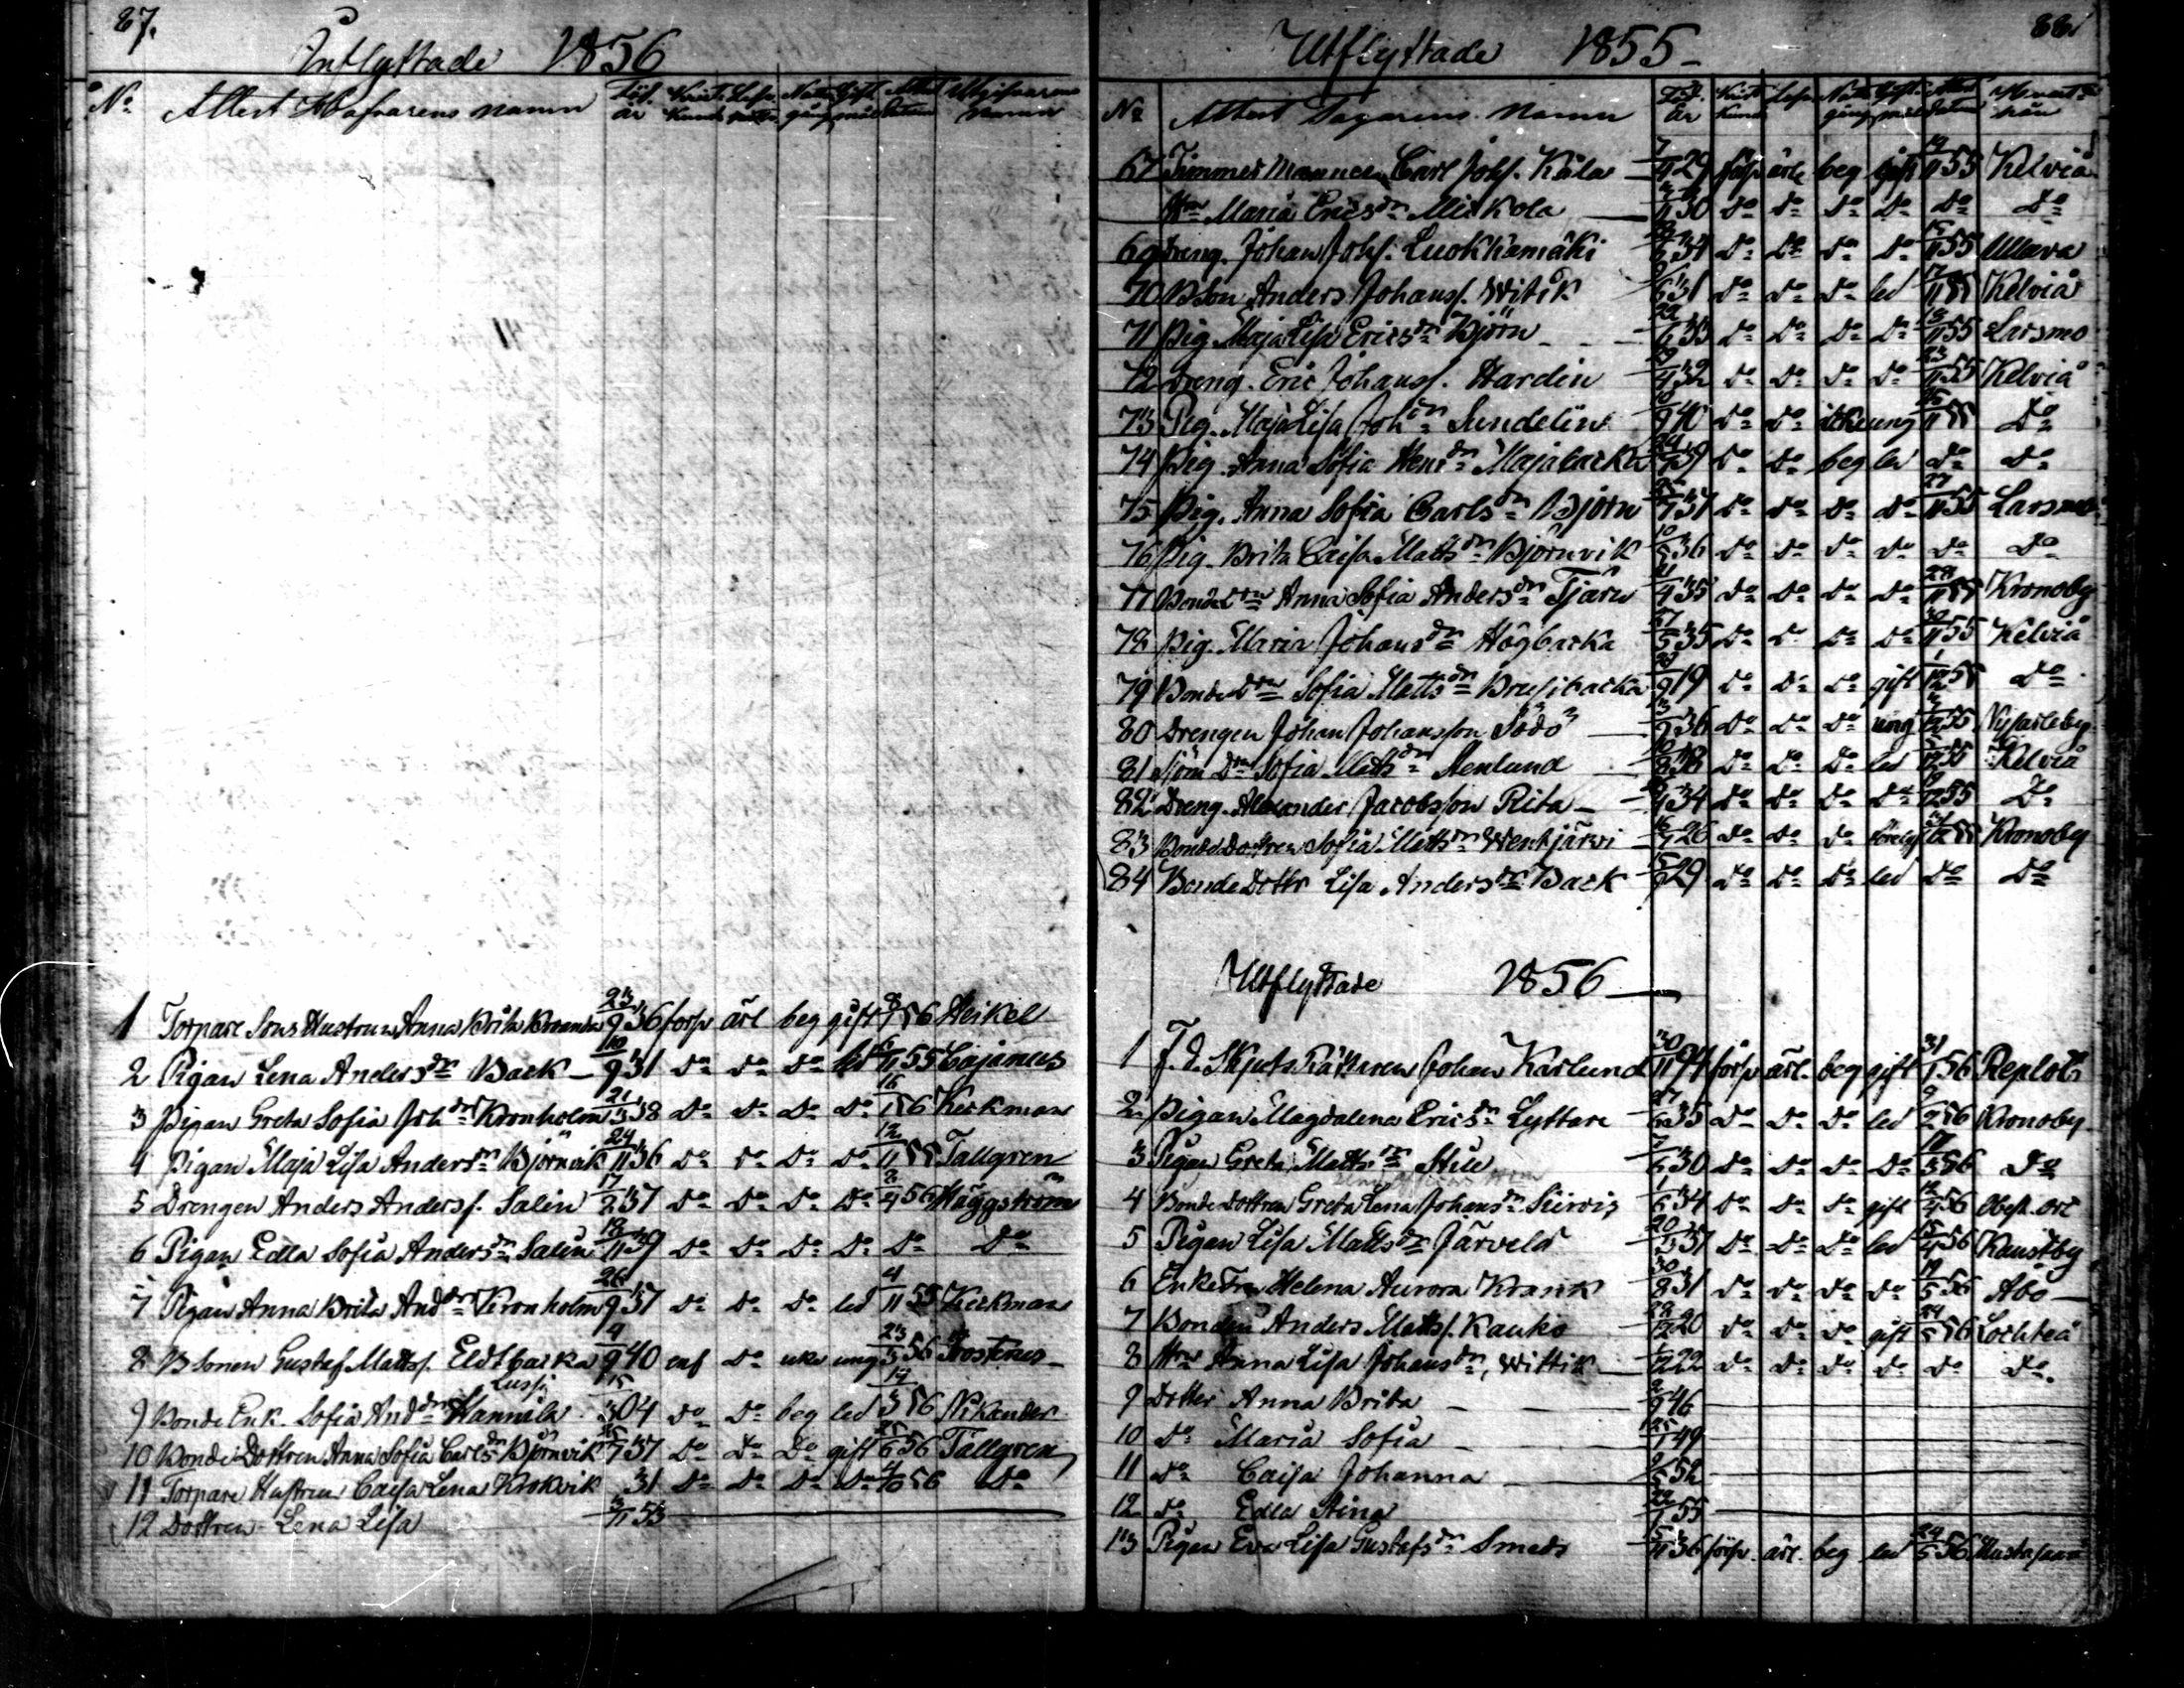 87.
Inflyttade 1856
No Attest Hafvarens namn Föd. år Krist. kunsk. Läsn. Natt. gång Gift. mål Attest datum Utgifvarens namn
1 Torpare Sons Hustrun Anna Brita 23/9 36 förs ärl beg gift 8/1 56 Heikel
2 Pigan Lena Andersdr Back 10/9 31 do do do led 55 Cajanus
3 Pigan Greta Sofia Johdr Kronholm 21/3 38 do do do do 16/1 56 Keckman
4 Pigan Maja Lisa Andersdr Björnvik 24/11 36 do do do do 12/11 55 Tallgren
5 Drengen Anders Andersf. Salin 17/2 37 do do do do 2/4 56 Häggström
6 Pigan Edla Sofia Andersdr Salin 18/11 39 do do do do do do
7 Pigan Anna Brita Anddr Kronholm 26/9 37 do do do led 4/11 55 Keckman
8 B Sonen Gustaf Mattsf. Eldtbacka 9/9 40 enf do icke ung 23/5 56
Lussi
9 Bonde Enk. Sofia Anddr Hannila 15/3 04 do do beg led 14/3 56 Nikander
10 Bonde Dottren Anna Sofia Carlsdr Björnvik 37 do do do gift 25/6 56 Tallgren
11 Torpare Hustrun Caisa Lena Krokvik 31 do do do do 4/10 56 do
12 Dottren Lena Lisa 3/11 53
881
Utflyttade 1855
No Attest Tagarens Namn Föd. år Krist. kunsk Läsn. Natt. gång Gift. mål Attest datum
67 Timmermannen Carl Johs. Kåla 7/11 29 förs ärl beg gift 14/11 55 Kelviå
Hn Maria Ericsdn Miekola 30 do do do do do do
69 Dreng. Johan Johs. Luokkamäki 31 do do do do 15/11 55 Ullava
70 B Son Anders Johansf. Witik 31 do do do led 17/11 55 Kelviå
71 Pig. Maja Lisa Ericsdr Björn 22/6 35 do do do do 18/11 55 Larsmo
72 Dreng. Eric Johansf. Hardin 29/4 32 do do do do 23/11 55 Kelviå
73 Pig. Maja Lisa Johdr Sundelin 40 do do icke ung 55 do
74 Pig. Anna Sofia Henrdr Majabacka 39 do do beg led do do
75 Pig. Anna Sofia Carlsdr Björn 37 do do do do 27/11 55 Larsmo
76 Pig. Brita Caisa Mattsdr Björnvik 10/5 36 do do do do do do
77 Bonde Drn Anna Sofia Andersdr Tjäru 35 do do do do 28/11 55 Kronoby
78 Pig. Maria Johansdr Högbacka 27/5 35 do do do do 30/11 55 Kelviå
79 Bonde Drn Sofia Mattsdr Brusibacka 19 do do do gift 1/12 55 do
80 Drengen Johan Johansson Sodö 36 do do do ung 55 Nycarleby
81 Sjöm Drn Sofia Mattsdr Stenlund 38 do do do led 55 Kelviå
82 Dreng. Alexander Jacobsson Rita 34 do do do do 55 do
83 Bonde Dottren Sofia Mattsdr Wentjärwi 26 do do do 55 Kronoby
84 Bonde Dottr Lisa Andersdr Back 29 do do do led do do
Utflyttade 1856
1 f.d. Skjuts Rättaren Johan Karlund 30/11 94 förs ärl. beg gift 31/1 56 Replot
2 Pigan Magdalena Ericsdr Lyttare 27/6 35 do do do led 9/2 56 Kronoby
3 Pigan Greta Mattsdr Still 7/6 30 do do do do 17/3 56 do
4 Bonde Dottren Greta Lena Johansdr Sirviö 1/6 34 do do do gift 56 Obest. ort
5 Pigan Lisa Mattsdr Järvelä 20/2 37 do do do led 15/4 56 Kaustby
6 Enke Fru Helena Aurora Krank 30/8 31 do do do do 19/5 56 Åbo
7 Bonden Anders Mattsf. Kauko 28/12 20 do do do gift 24/5 56 Lochteå
8 Hn Anna Lisa Johansdr Wittik 22 do do do do do do
9 Dotter Anna Brita 46
10 do Maria Sofia 49
11 do Caisa Johanna 52
12 do Edla Stina 22/1 55
13 Pigan Eva Lisa Gustafsdr Smeds 15/11 36 förs. ärl. beg led 24/5 56 Mustasaari